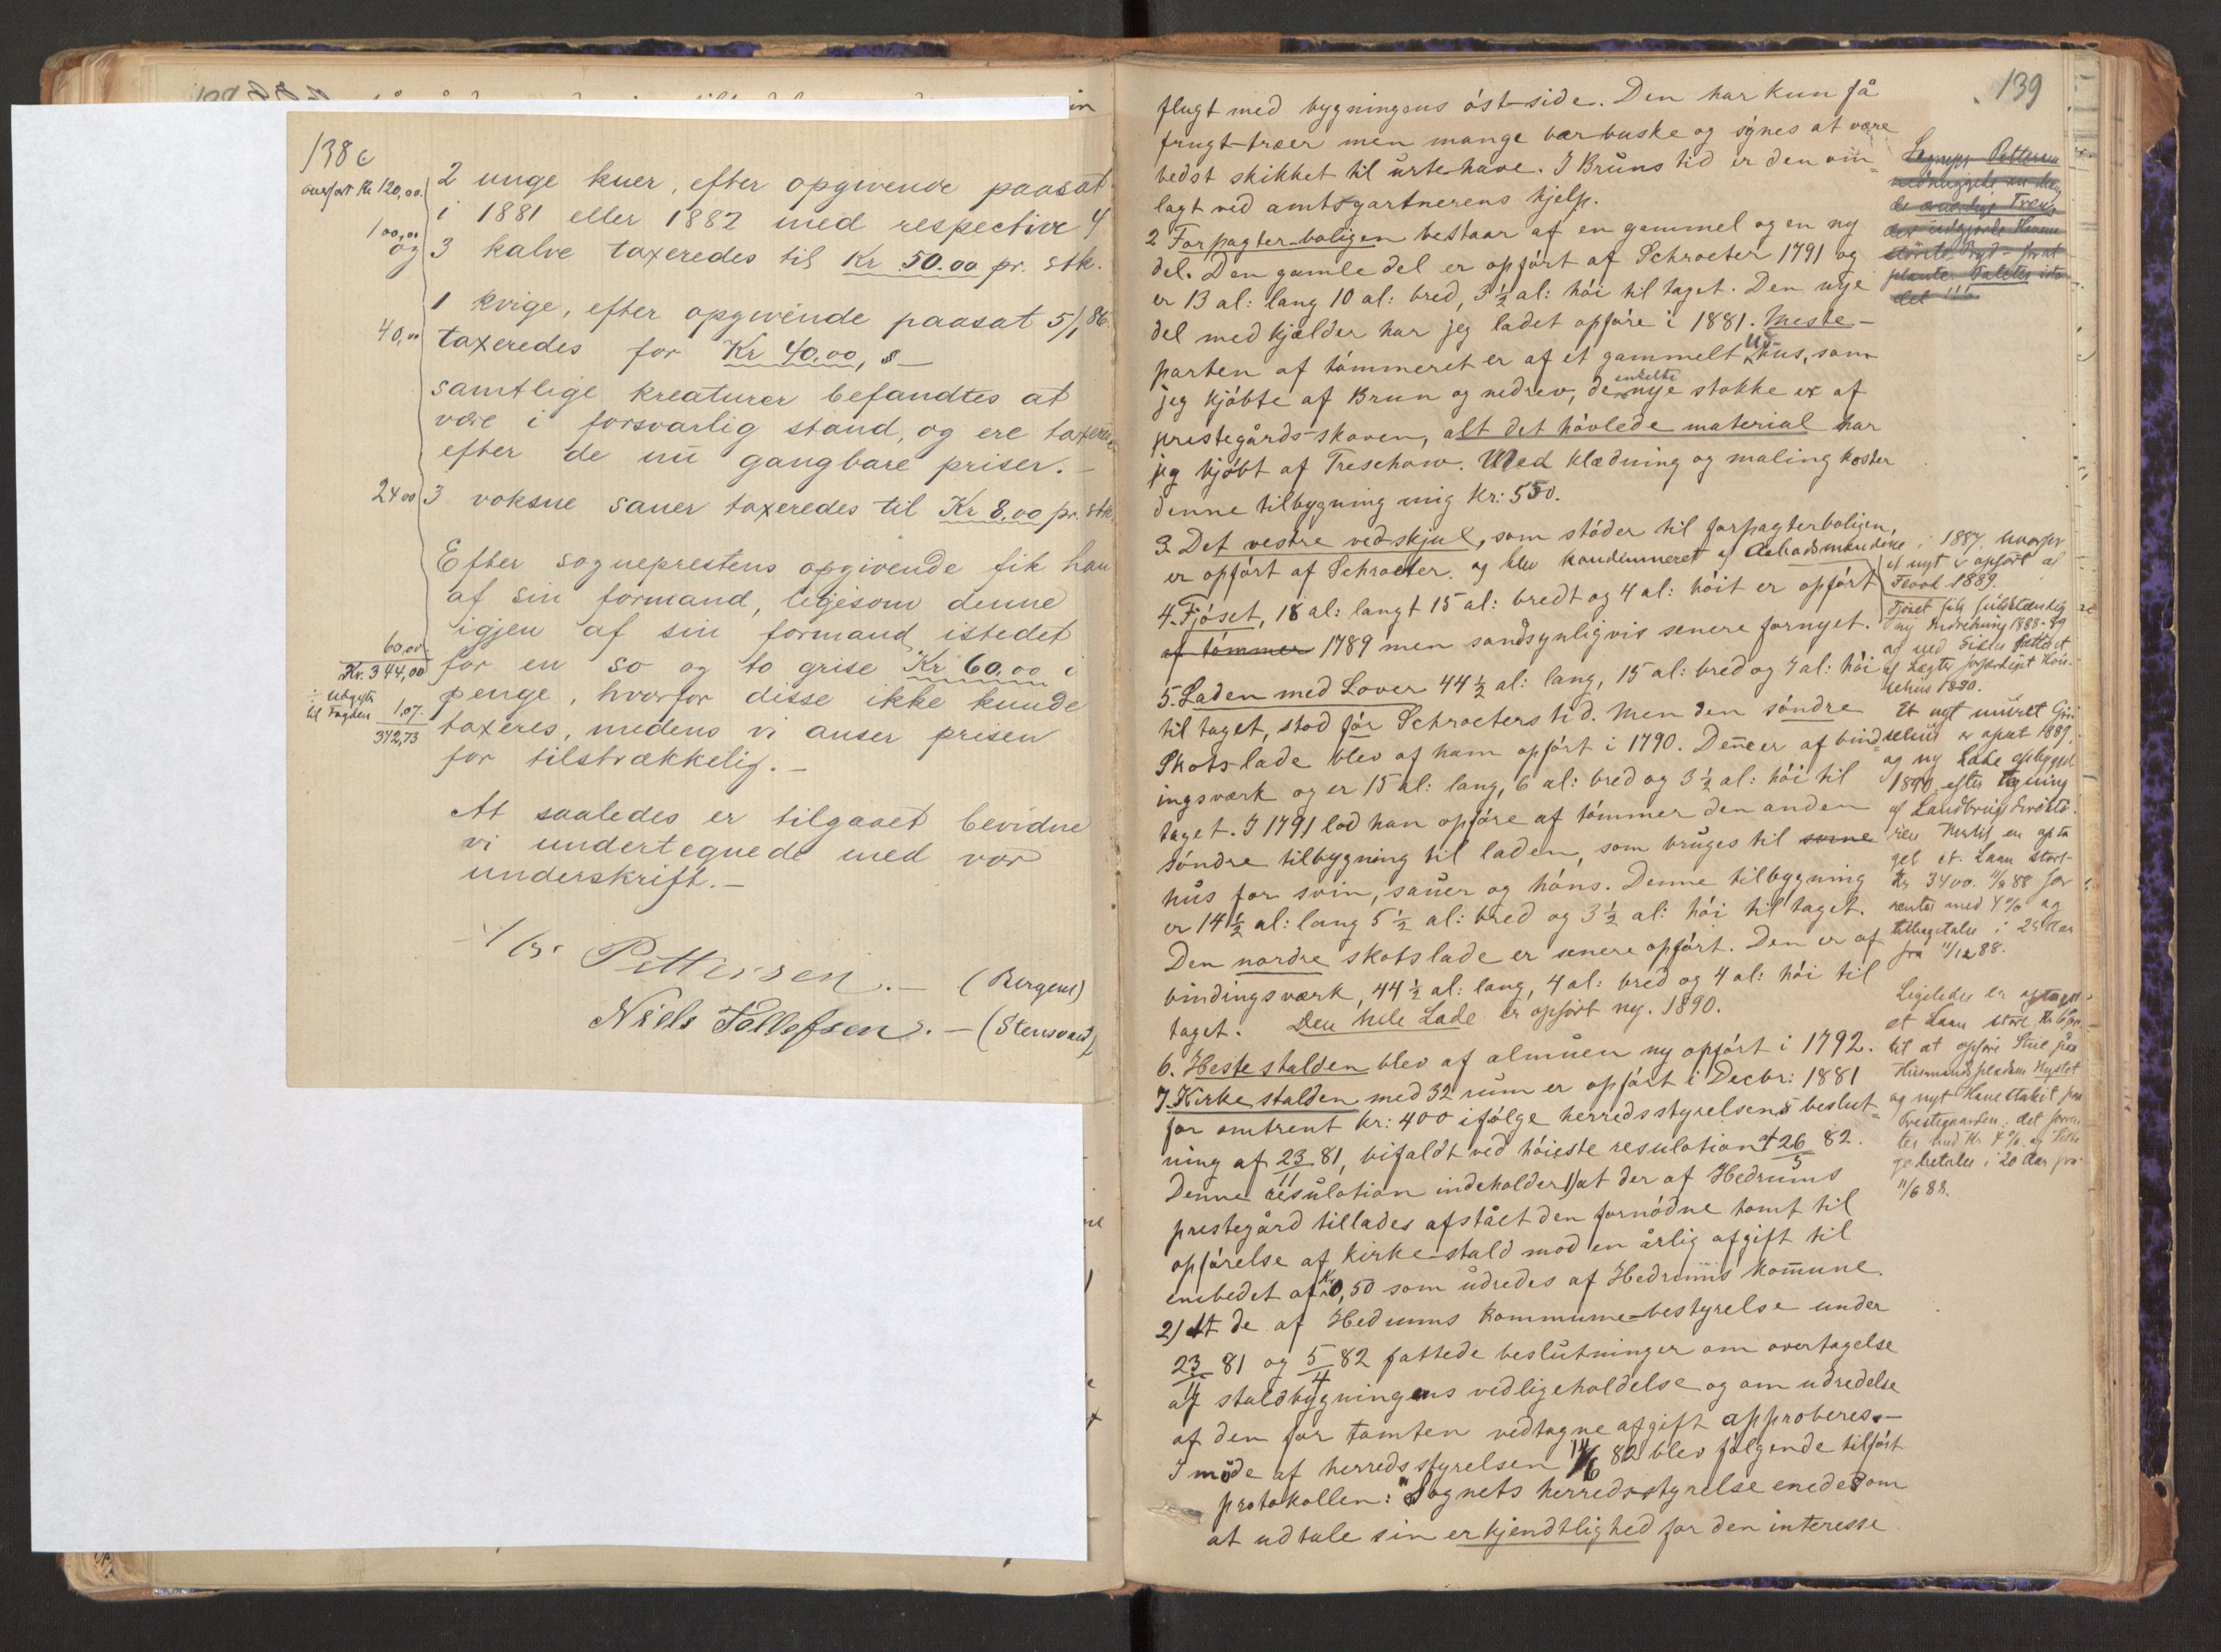 138 c
overført Kr 120,00.
2 unge kuer, efter opgivende paasat
i 1881 eller 1882 med respective 4
100,00
og 3 kalve taxeredes til Kr 50.00 pr. stk.
1 kvige, efter opgivende paasat 5/1 86.
40,00 taxeredes for Kr 40.00, s
samtlige kreaturer befandtes at
være i forsvarlig stand, og ere taxerede
efter de nu gangbare priser. –
24 00 3 voksne sauer taxeredes til Kr 8,00 pr. stk.
Efter sogneprestens opgivende fik han
af sin formand, ligesom denne
igjen af sin formand istedet
60,00 for en so og to grise Kr 60,00 i
Kr. 344,00 penge, hvorfor disse ikke kunde
÷ Udgift
til Fogden 1,07. taxeres, medens vi anser prisen
342,73 for tilstrækkelig. –
At saaledes er tilgaaet bevidne
vi undertegnede med vor
underskrift. –
Pettersen. – (Bergene)
Niels Tollefsen. – (Stensvard)
139
flugt med bygningens óst-side. Den har kun få
frugt-træer men mange bær-buske og sýnes at være
bedst skikket til urte-have. I Brúns tid er den om=
lagt ved amtsgartnerens hjelp.
2 Forpagter-boligen bestaar af en gammel og en ny
del. Den gamle del er opfórt af Schroeter 1791 og
er 13 al: lang 10 al: bred, 3 ½ al: hói til taget. Den nye
del med kjælder har jeg ladet opfóre i 1881. Meste-
parten af tómmeret er af et gammelt hus, som
jeg kjóbte af Brun og nedrev, de enkelte nye stokke er af
prestegårds-skoven, alt det hóvlede material har
jeg kjóbt af Treschow. Med klædning og maling koster
denne tilbygning mig kr: 550.
3 Det vestre vedskjul, som stóder til forpagterboligen,
er opfórt af Schroeter. og blev kondemneret af Aabodsmændene i 1887, hvorpr
et nyt er opført af
Teood 1889.
4. Fjóset, 18 al: langt 15 al: bredt og 4 al: hóit er opfórt
af tómmer 1789 men sandsynligvis senere fornyet.
Fjøset fik fuldstændig
ny Indredning 1888-89
5. Laden med Lover 44 ½ al: lang, 15 al: bred og 7 al: hói
til taget, stod fór Schroeters tid. Men den sóndre
Skots lade blev af ham opfórt i 1790. Denne er af bind=
ingsværk og er 15 al: lang, 6 al: bred og 3 ½ al: hói til
taget. I 1791 lod han opfóre af tómmer den anden
sóndre tilbygning til laden, som bruges til svine
hus for svin, sauer og hóns. Denne tilbygning
er 14 ½ al: lang 5 ½ al: bred og 3 ½ al: hói til taget.
Den nordre skotslade er senere opfórt. Den er af
bindingsværk, 44 ½ al: lang, 4 al: bred og 4 al: hói til
taget. Den hele Lade er opført ny. 1890.
Et nyt muret
er opsat 1889.
og ny Lade opbygget
1890, efter tegning
af Landbrugsdirektø-
ren. Hertil er opta
get et Laan stort
Kr 3400. 11/12 88 for
rentes med 4 % og
tilbagetales i 28 Aar
fra 11/12 88.
6. Hestestalden blev af almuen ny opfórt i 1792.
7. Kirkestalden med 32 rum er opfórt i Decbr: 1881
for omtrent kr: 400 ifólge herredsstyrelsens beslut=
ning af 23/11 81, bifaldt ved hóieste resulotion af 26/5 82.
Denne resulotion indeholder 1) at der af Hedrums
prestegård tillades afstået den fornódne tomt til
opfórelse af kirke-stald mod en årlig afgift til
embedet af Kr 0,50 som udredes af Hedrums kommune.
2) At de af Hedrums kommune-bestyrelse under
23/11 81 og 5/4 82 fattede beslutninger om overtagelse
af staldbygningens vedligeholdelse og om udredelse
af den for tomten vedtagne afgift approberes. –
I móde af herredsstyrelsen 14/6 82 blev fólgende tilfórt
protokollen: "Sognets herredsstyrelse enedes om
at udtale sin erkjendtlighed for den interesse
Ligeledes er optaget
et Laan stort
til at opføre Stue paa
Husmandspladsen Myslet
og nyt Havestakit paa
Prestegaarden; det forren-
tes med Kr 4 % og tilba
gebetales i 20 Aar fra
11/6 88.